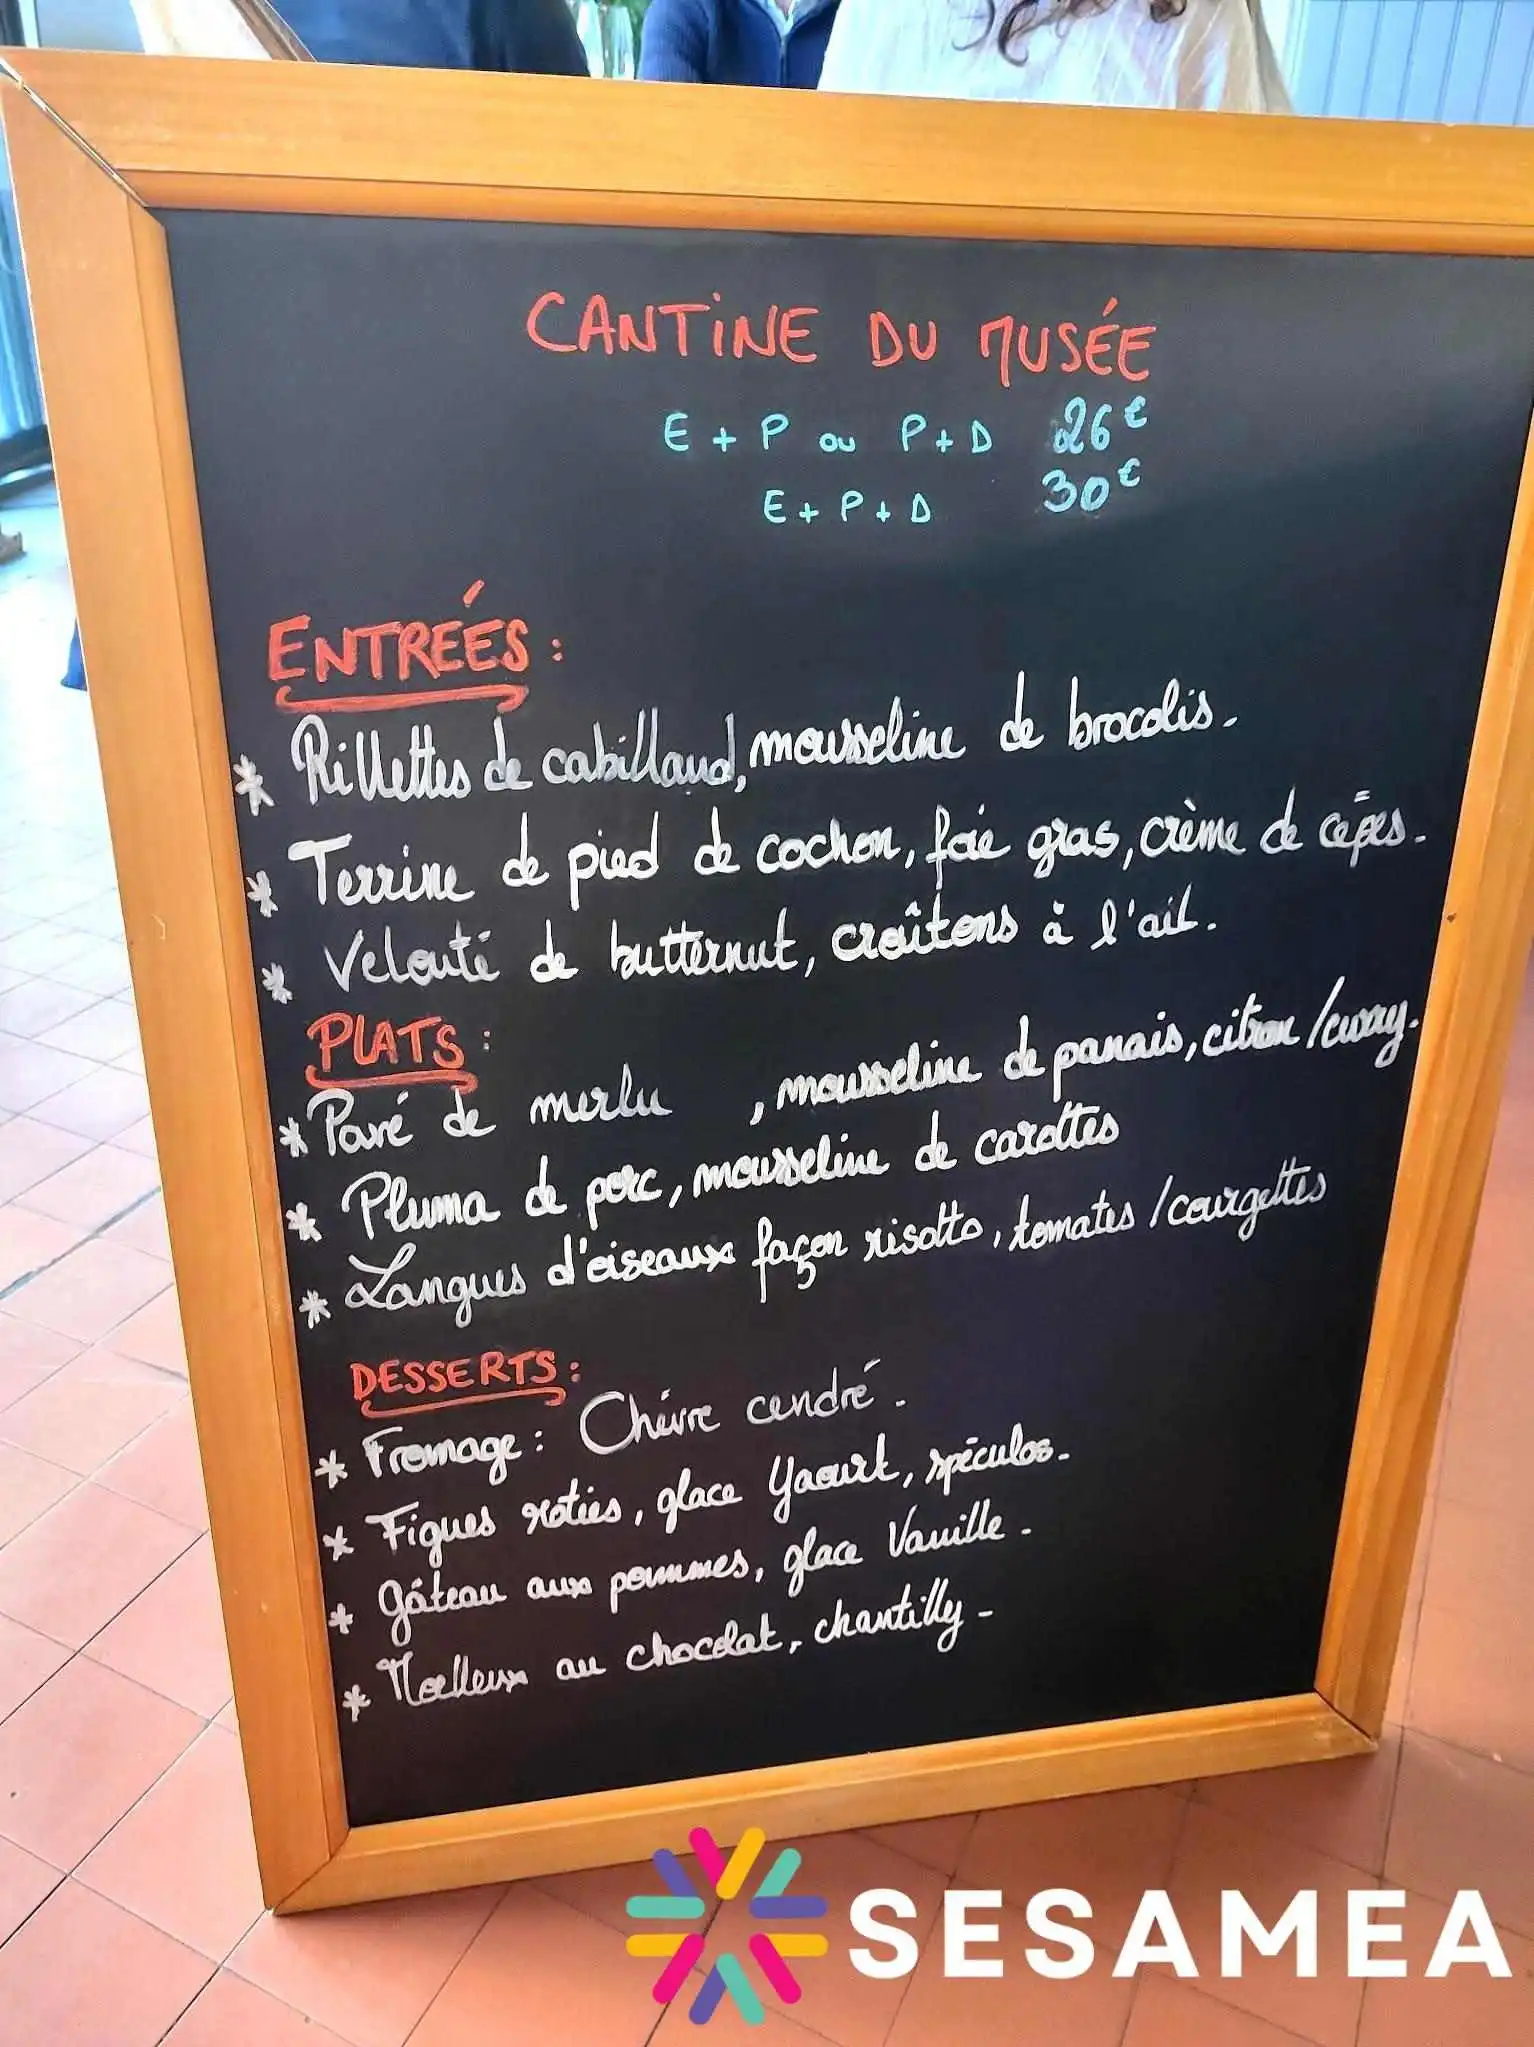 CANTINE DU MUSÉE
E + P ou P + D 26€
E + P + D 30€
ENTREÉS :
* Rillettes de cabillaud, mousseline de brocolis.
* Terrine de pied de cochon, foie gras, crème de cêpes.
* Velouté de butternut, croûtons à l'ail.
PLATS :
* Pavé de merlu , mousseline de panais, citron / curry.
* Pluma de porc, mousseline de carottes
* Langues d'oiseaux façon risotto, tomates / courgettes
DESSERTS :
* Fromage : Chèvre cendré.
* Figues roties, glace Yaourt, spéculos.
* Gâteau aux pommes, glace Vanille.
* Moelleux au chocolat, chantilly.
SESAMEA